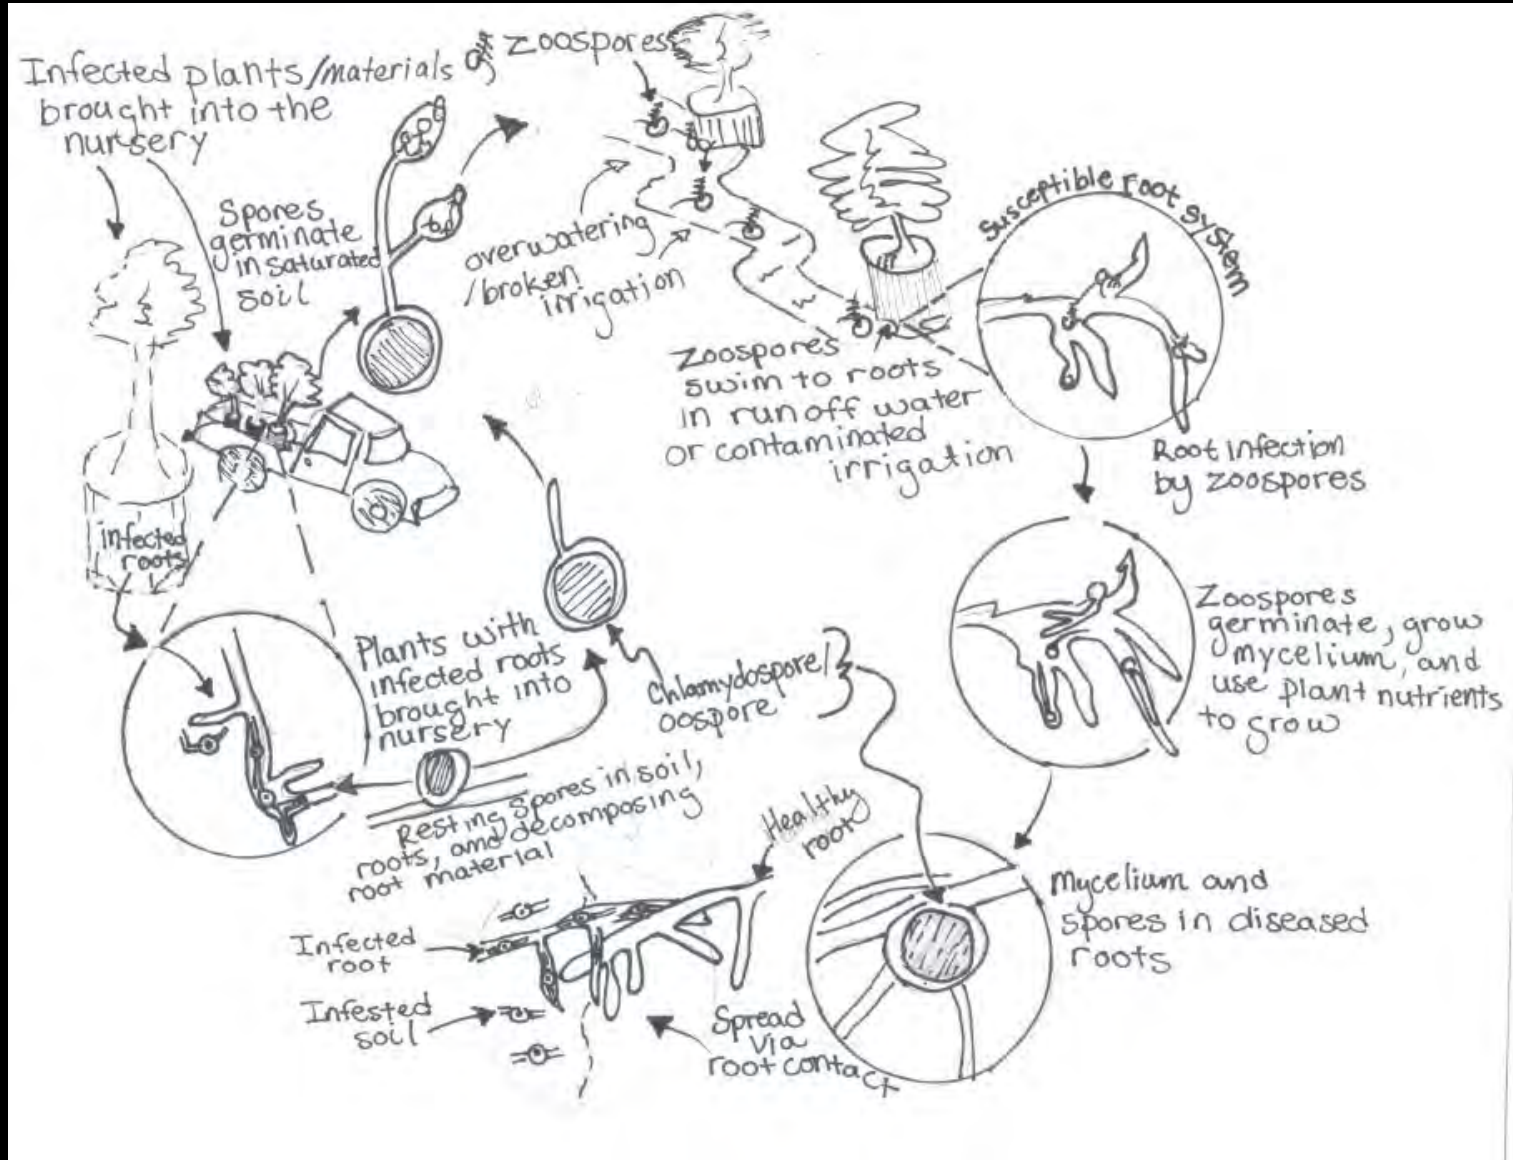 Infected plants/materials
brought into the
nursery
Zoospores
Spores
germinate
in saturated
soil
overwatering
/broken
irrigation
Susceptible root system
Zoospores
swim to roots
in runoff water
or contaminated
irrigation
Root infection
by zoospores
infected
roots
Plants with
infected roots
brought into
nursery
Chlamydospore/
oospore
Zoospores
germinate, grow
mycelium, and
use plant nutrients
to grow
Resting spores in soil,
roots, and decomposing
root material
Healthy
root
Mycelium and
spores in diseased
roots
Infected
root
Infested
soil
Spread
via
root contact